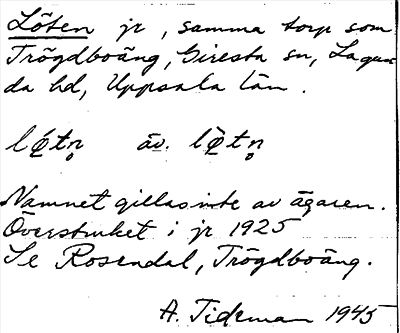 Löten jr, samma torp som
Trögdboäng, Giresta sn, Lagun-
da hd, Uppsala län.
lǿtn̥ äv. lø̀tn̥
Namnet gillas inte av ägaren.
Överstruket i jr 1925
Se Rosendal, Trögdboäng.
A. Tideman 1945